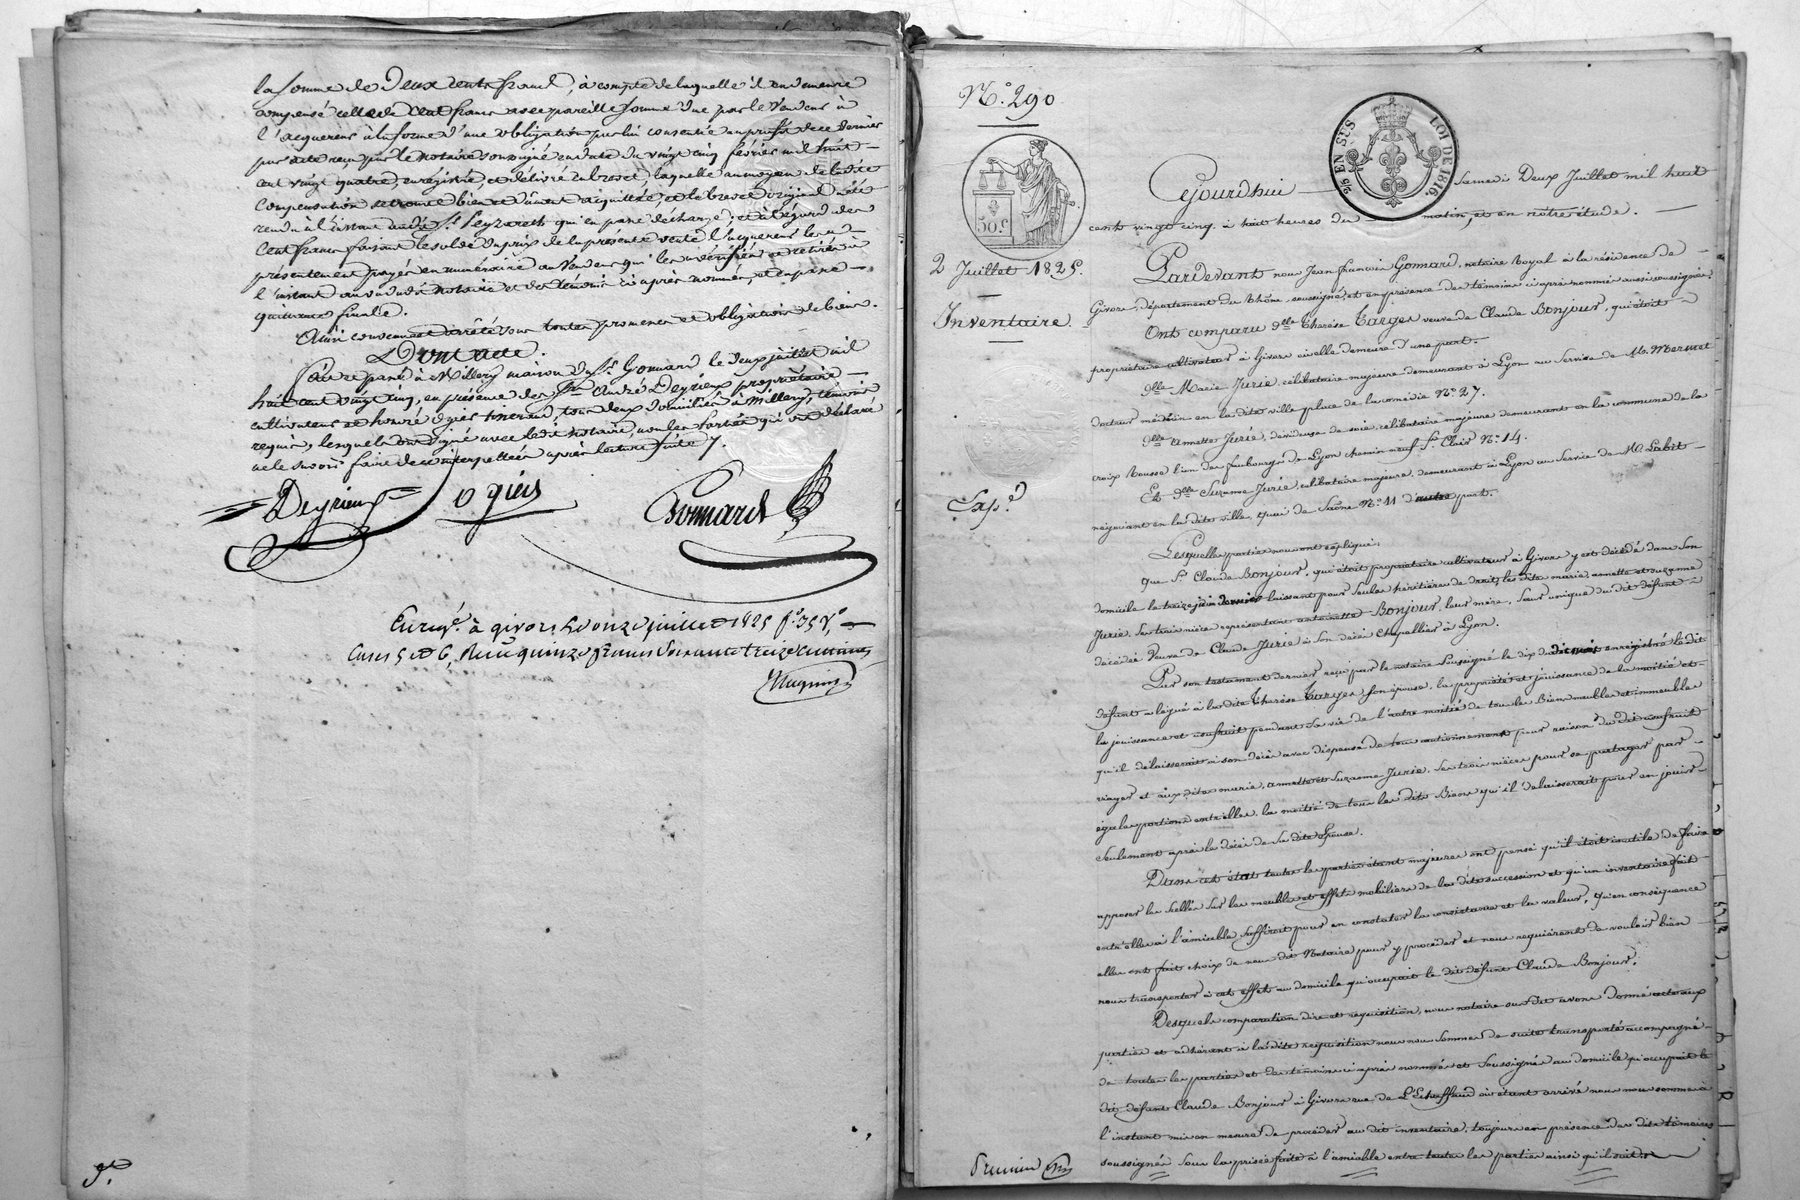 la somme de Deux cents francs, à compte de laquelle il en demeure
compensé celle de Cent francs avec pareille somme due par le vendeur à
l'acquereur à la forme d'une obligation par lui consentie au profit de ce dernier
par acte reçu par le notaire soussigné en date du vingt cinq février mil huit
cent vingt quatre, enregistré, et délivré en brevet, laquelle au moyen de la dite
compensation se trouve bien et dûment acquittée, et le brevet original a été
rendu à l'instant au dit Sr. qui en passe décharge; et à l'égard des
Cent francs formant le solde du prix de la présente vente l'acquereur les a
présentement payés en numéraire au vendeur qui les a vérifiés et retirés à
l'instant au vu du dit notaire et des témoins ci après nommés, et en passe
quittance finale.
Ainsi convenu et arrêté sous toutes promesses et obligations de biens.
Dont acte.
fait et passé à Millery maison du Sr. Gomard le deux juillet mil
huit cent vingt cinq, en présence des Srs. André Deyrieux propriétaire
cultivateur et honoré Ogier tisserand, tous deux domiciliés à Millery, témoins
requis, lesquels ont signé avec le dit notaire, non les parties qui ont déclaré
ne le savoir faire de ce interpellées après lecture faite
Deyrieux Ogier Gomard
Enregé. à givors le onze juillet 1825 fo. 35 Vo.
Cases 5 et 6, Reçu quinze francs soixante treize centimes
No. 290
5/5 EN SUS LOI DE 1816
50 c
2 Juillet 1825.
Inventaire.
Exp.d
Cejourdhui Samedi Deux Juillet mil huit
cent vingt cinq, à huit heures du matin, et en nôtre étude.
Pardevant nous Jean françois Gomard, notaire Royal à la résidence de
Givors, département du Rhône, soussigné, et en présence des témoins ci après nommés aussi soussignés.
Ont comparu dlle Therèse Targes veuve de Claude Bonjour, qui était
propriétaire cultivateur à Givors où elle demeure d'une part.
dlle Marie Jurie, célibataire majeure demeurant à Lyon au service de M. Mermet
docteur médecin en la dite ville place de la comédie No. 27.
dlle Annette Jurie, dévideuse de soie, célibataire majeure demeurant en la commune de la
croix Rousse l'un des faubourgs de Lyon chemin neuf St. Clair No. 14.
Et dlle Suzanne Jurie, célibataire majeure, demeurant à Lyon au service de M. Labit
négociant en la dite ville, quai de Saône No. 11 d'autre part.
Lesquelles parties nous ont expliqué;
Que Sr. Claude Bonjour, qui était propriétaire cultivateur à Givors y est décédé dans son
domicile le treize juin dernier laissant pour seules héritières de droit, les dites marie, annette et suzanne
Jurie, ses trois nièces représentant antoinette Bonjour, leur mère, sœur unique du dit défunt
décédée veuve de Claude Jurie à son décès Chapellier à Lyon.
Par son testament dernier reçu par le notaire soussigné le dix du dit mois enregistré le dit
défunt a légué à la dite Therèse Targes son épouse, la propriété et jouissance de la moitié et
la jouissance et usufruit pendant sa vie de l'autre moitié de tous les biens meubles et immeubles
qu'il délaisserait à son décès avec dispense de tout cautionnement pour raison du dit usufruit
viager et aux dites marie, annette et Suzanne Jurie, ses trois nièces pour se partager par
égales portions entr'elles, la moitié de tous les dits Biens qu'il delaisserait pour en jouir
seulement après le décès de sa dite épouse.
Dans cet état toutes les parties étant majeures ont pensé qu'il était inutile de faire
apposer les scellés sur les meubles et effets mobiliers de la dite succession et qu'un inventaire fait
entr'elles à l'amiable suffirait pour en constater la consistance et la valeur, qu'en conséquence
elles ont fait choix de nous dit Notaire pour y procéder et nous requièrent de vouloir bien
nous transporter à cet effet au domicile qu'occupait le dit défunt Claude Bonjour.
Desquels comparution dire et requisition, nous notaire susdit avons donné acte aux
parties et adhérant à la dite requisition nous nous sommes de suite transporté accompagné
de toutes les parties et des témoins ci après nommés et soussignés au domicile qu'occupait le
dit défunt Claude Bonjour à Givors rue de L'Echaffaud où étant arrivé nous nous sommes à
l'instant mis en mesure de procéder au dit inventaire, toujours en présence des dits témoins
soussignés sous la prisée faite à l'amiable entre toutes les parties ainsi qu'il suit.